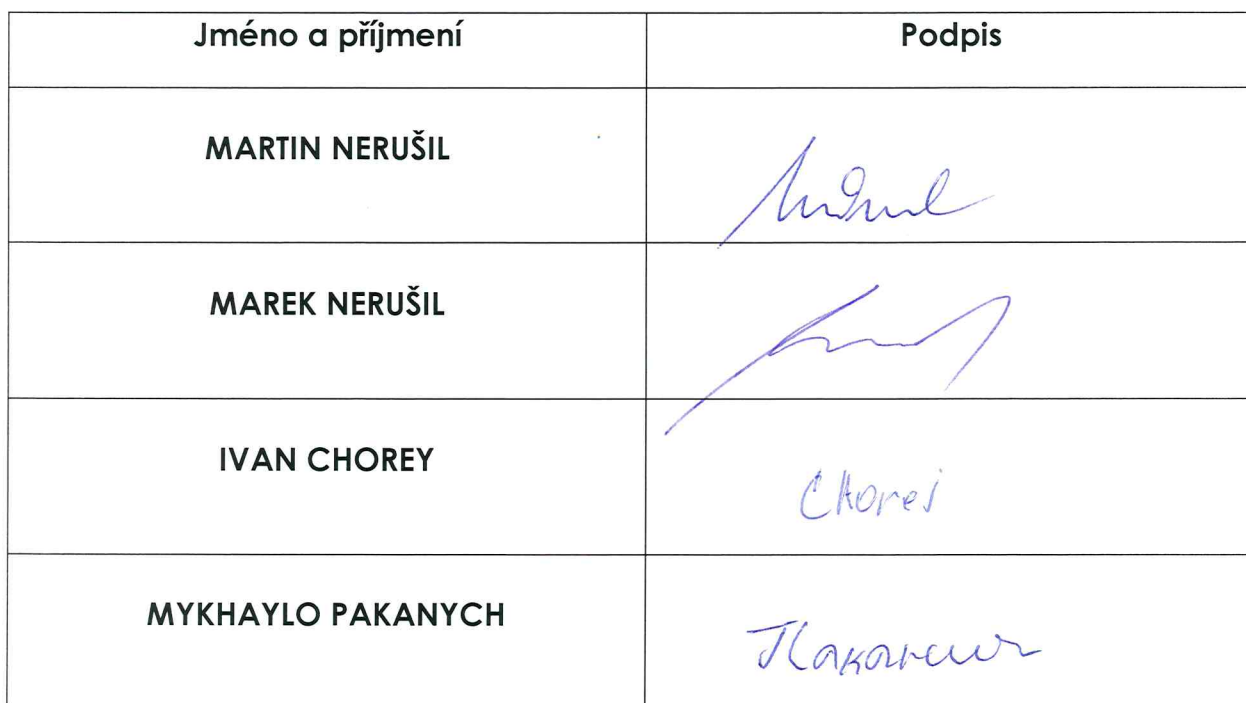 Jméno a příjmení
Podpis
MARTIN NERUŠIL
MAREK NERUŠIL
IVAN CHOREY
Chorei
MYKHAYLO PAKANYCH